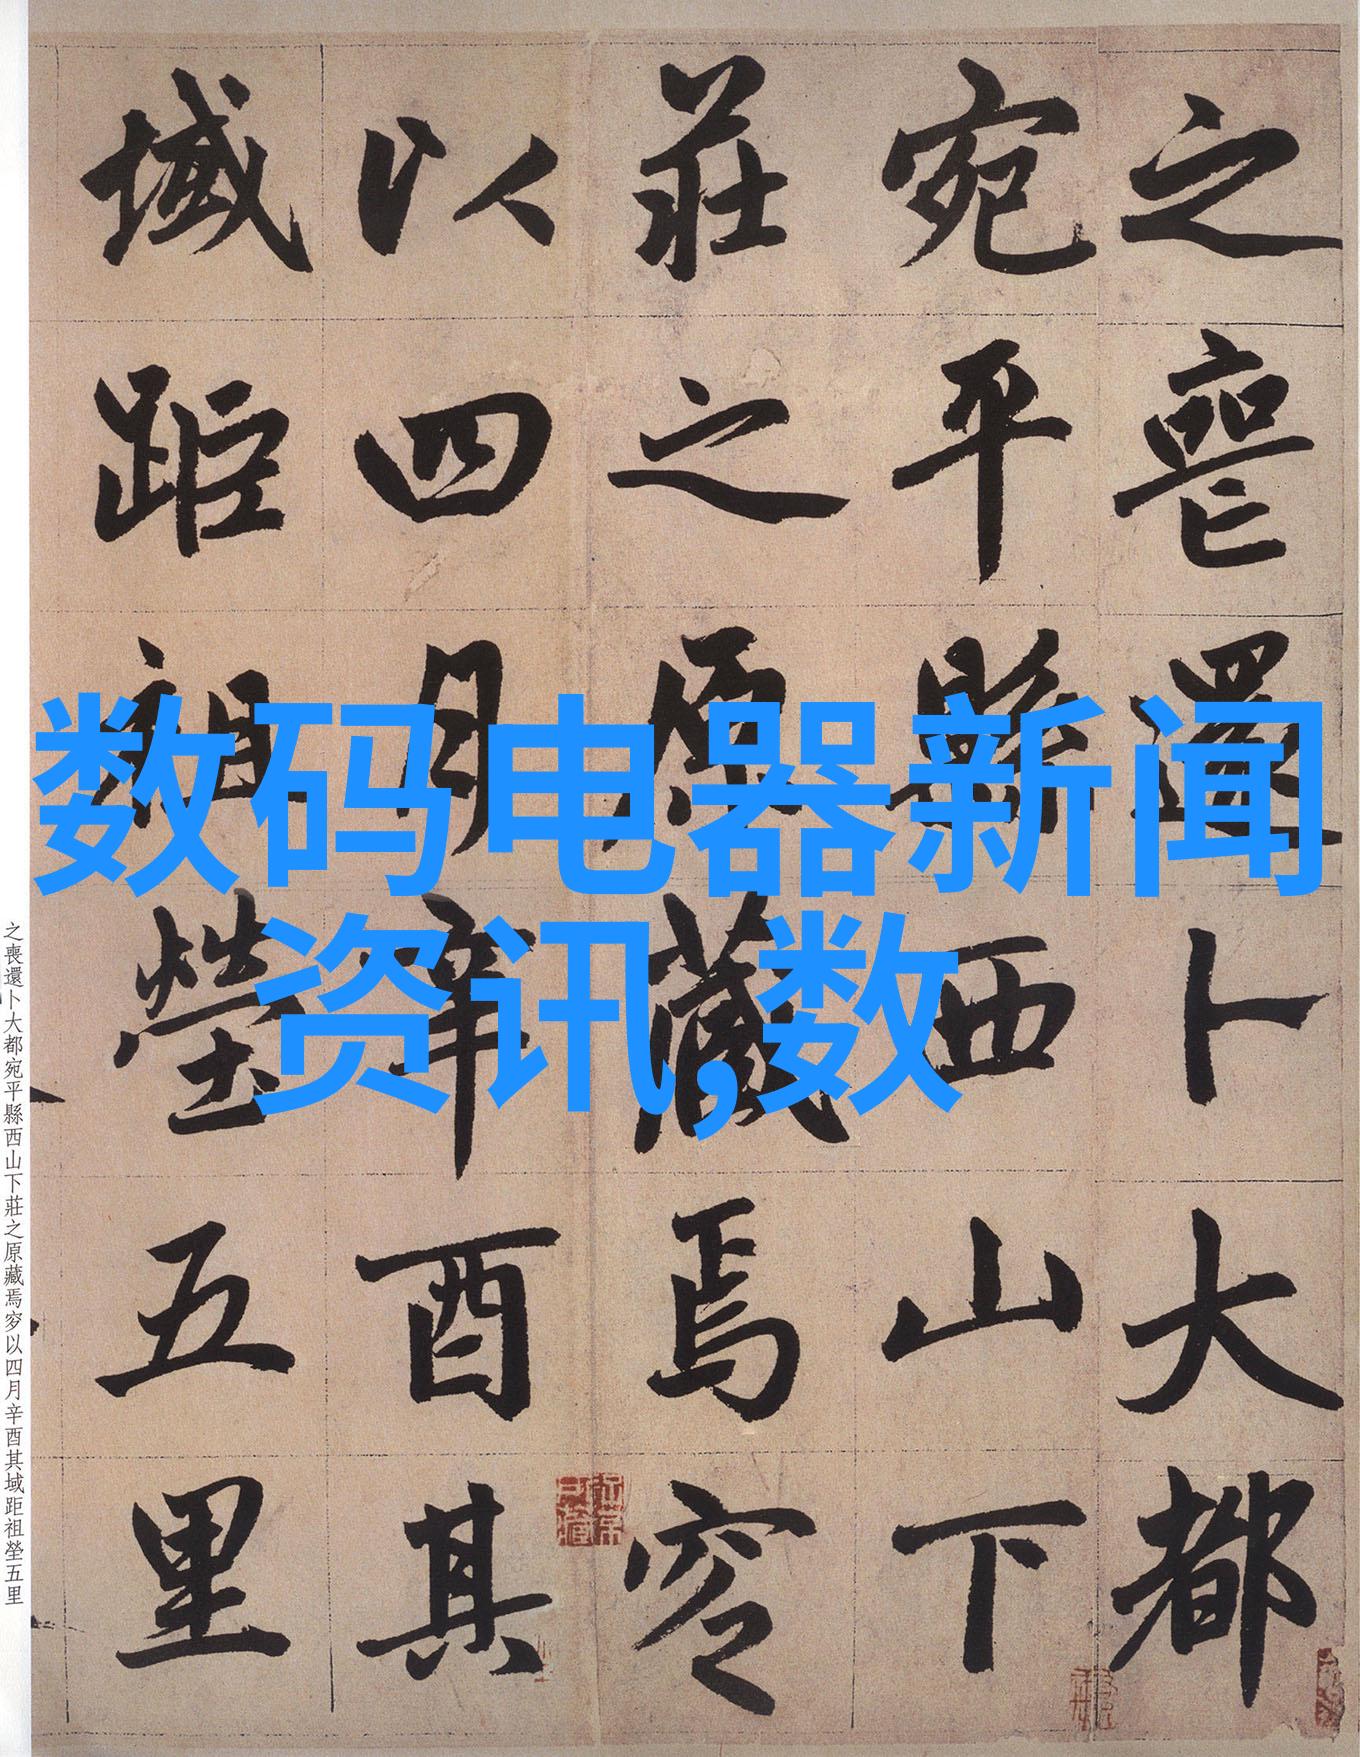 之喪還卜大都
宛平縣西山下
莊之原藏焉窆
以四月辛酉其
域距祖塋五里
数码电器新闻
资讯,数
之喪還卜大都宛平縣西山下莊之原藏焉窆以四月辛酉其域距祖塋五里